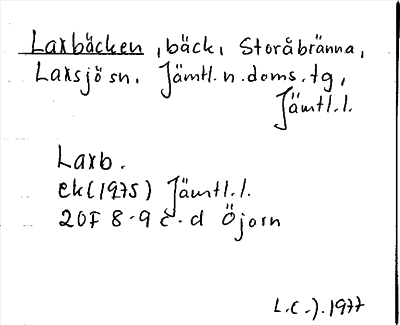 Laxbäcken, bäck, Storåbränna,
Laxsjö sn. Jämtl. n. doms. tg,
Jämtl. l.
Laxb.
ek (1975) Jämtl. l.
20F 8-9 c-d Öjorn
L.C-). 1977